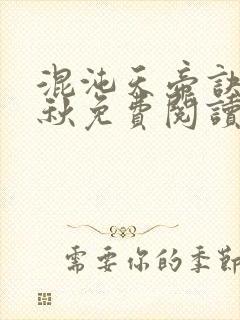 混沌天帝訣
秋免費閱讀
需要你的季節